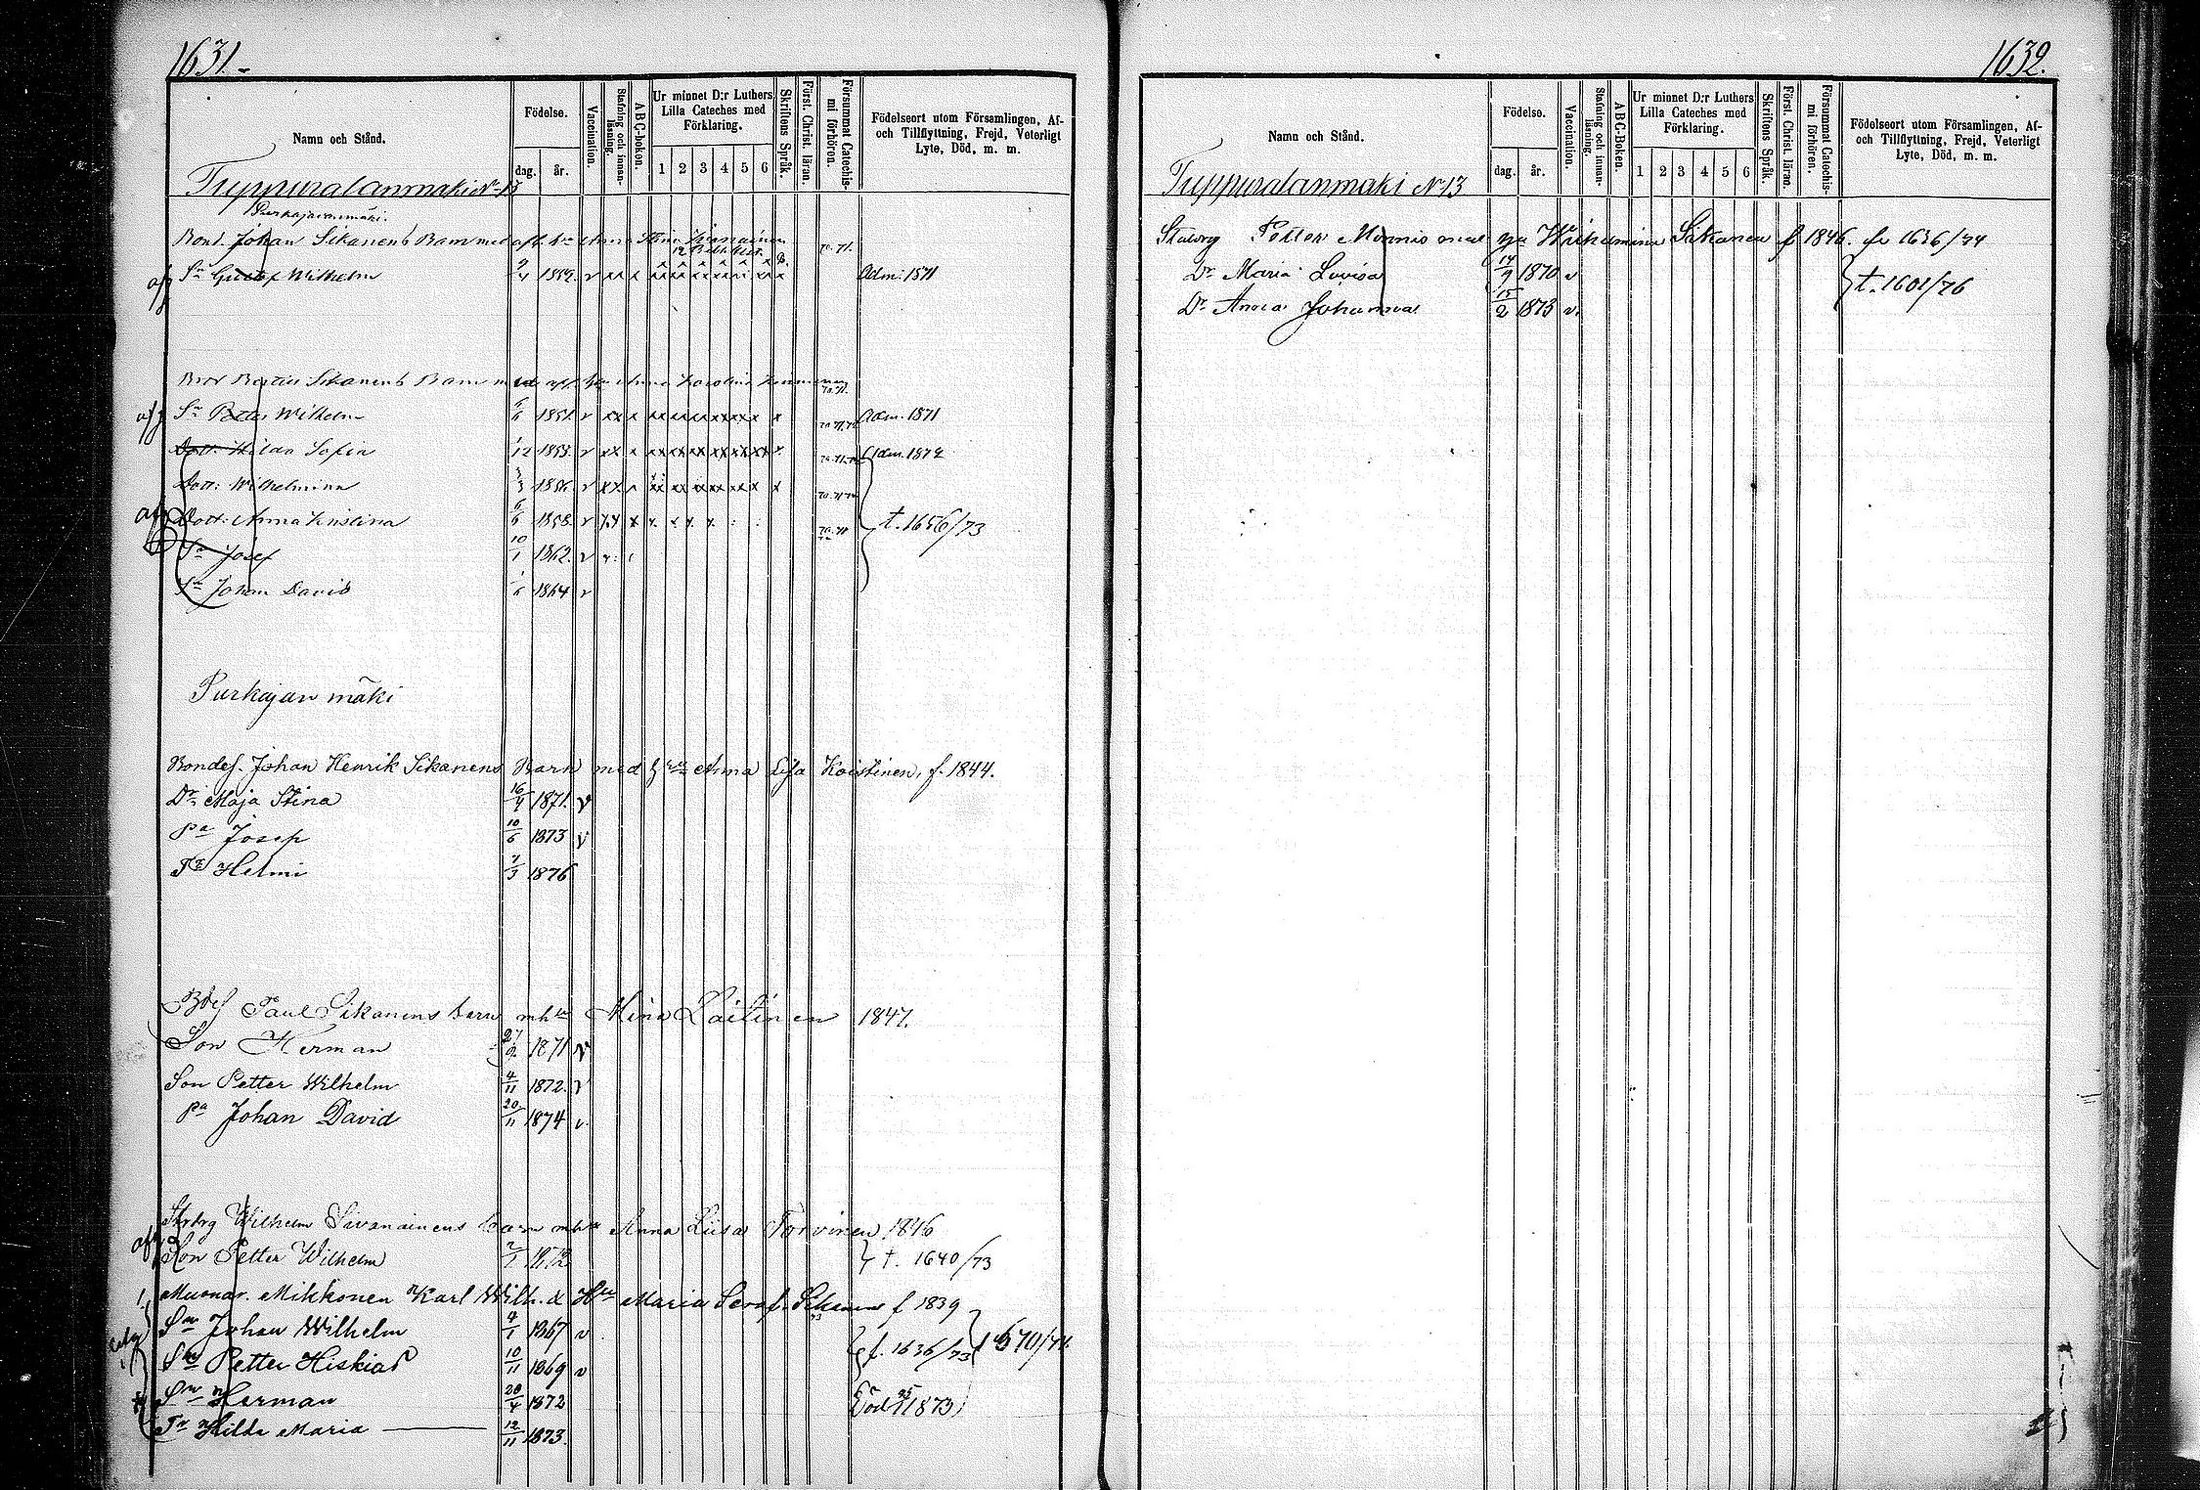 1631.
Namn och Stånd.
Födelse.
dag. år.
Vaccination.
Stafning och innan-läsning.
A B C-boken.
Ur minnet D:r Luthers Lilla Cateches med Förklaring.
1 2 3 4 5 6
Skriftens Språk.
Först. Christ. läran.
Försummat Catechis-mi förhören.
Födelseort utom Församlingen, Af- och Tillflyttning, Frejd, Veterligt Lyte, Död, m. m.
Tuppuralanmäki N 13
Purkajanmäki.
Bond. Johan Sikanens Barn med afl. hu Anna Stina 70.71.
Sn Gustaf Wilhelm 1852. v Adm: 1871
Sikanens Barn med afl. hu Anna Karolina
Sn Petter Wilhelm 1851. v Adm. 1871
Dott. Hilda Sofia 1/12 1853. v Adm. 1872
Dott: Wilhelmina 3/3 1856. v
Dott. Anna Kristina 6/6 1858. v t. 1656/73
Sn Josef 10/1 1862. v
Sn Johan David 1/6 1864 v
Purkajan mäki
Bondes. Johan Henrik Sikanens Barn med hru Anna Lisa Koistinen, f. 1844.
Dr Maja Stina 16/4 1871. v
Pa Josep 10/6 1873 v
Tr Helmi 7/3 1876
Bdes Paul Sikanens barn mhu Mina Laitinen 1847.
Son Herman 27/2 1871 v
Son Petter Wilhelm 4/11 1872. v
Pa Johan David 20/11 1874 v.
Wilhelm Sivanainens barn mhu Anna Liisa Torvinen 1846
Son Petter Wilhelm 2/1 1872 t. 1640/73
Muonar. Mikkonen Karl Wilh. & Hu Maria Seraf. Sikanen f 1839
Sn Johan Wilhelm 4/1 1867 v
Sn Petter Hiskias 10/11 1869 v f. 1636/73
Sn Herman 28/4 1872 Död 1873
Tr Hilda Maria 12/11 1873.
1632.
Namn och Stånd.
Födelse.
dag. år.
Vaccination.
Stafning och innan-läsning.
A B C-Boken.
Ur minnet D:r Luthers Lilla Cateches med Förklaring.
1 2 3 4 5 6
Skriftens Språk.
Först. Christ. läran.
Försummat Catechis-mi förhören.
Födelseort utom Församlingen, Af- och Tillflyttning, Frejd, Veterligt Lyte, Död, m. m.
Tuppuralanmäki N 13
Petter Monnis med Wilhelmina Sikanen f 1846. fr 1636/74
Dr Maria Lovisa 14/9 1870 v
Dr Anna Johanna 15/2 1873 v. t. 1601/76